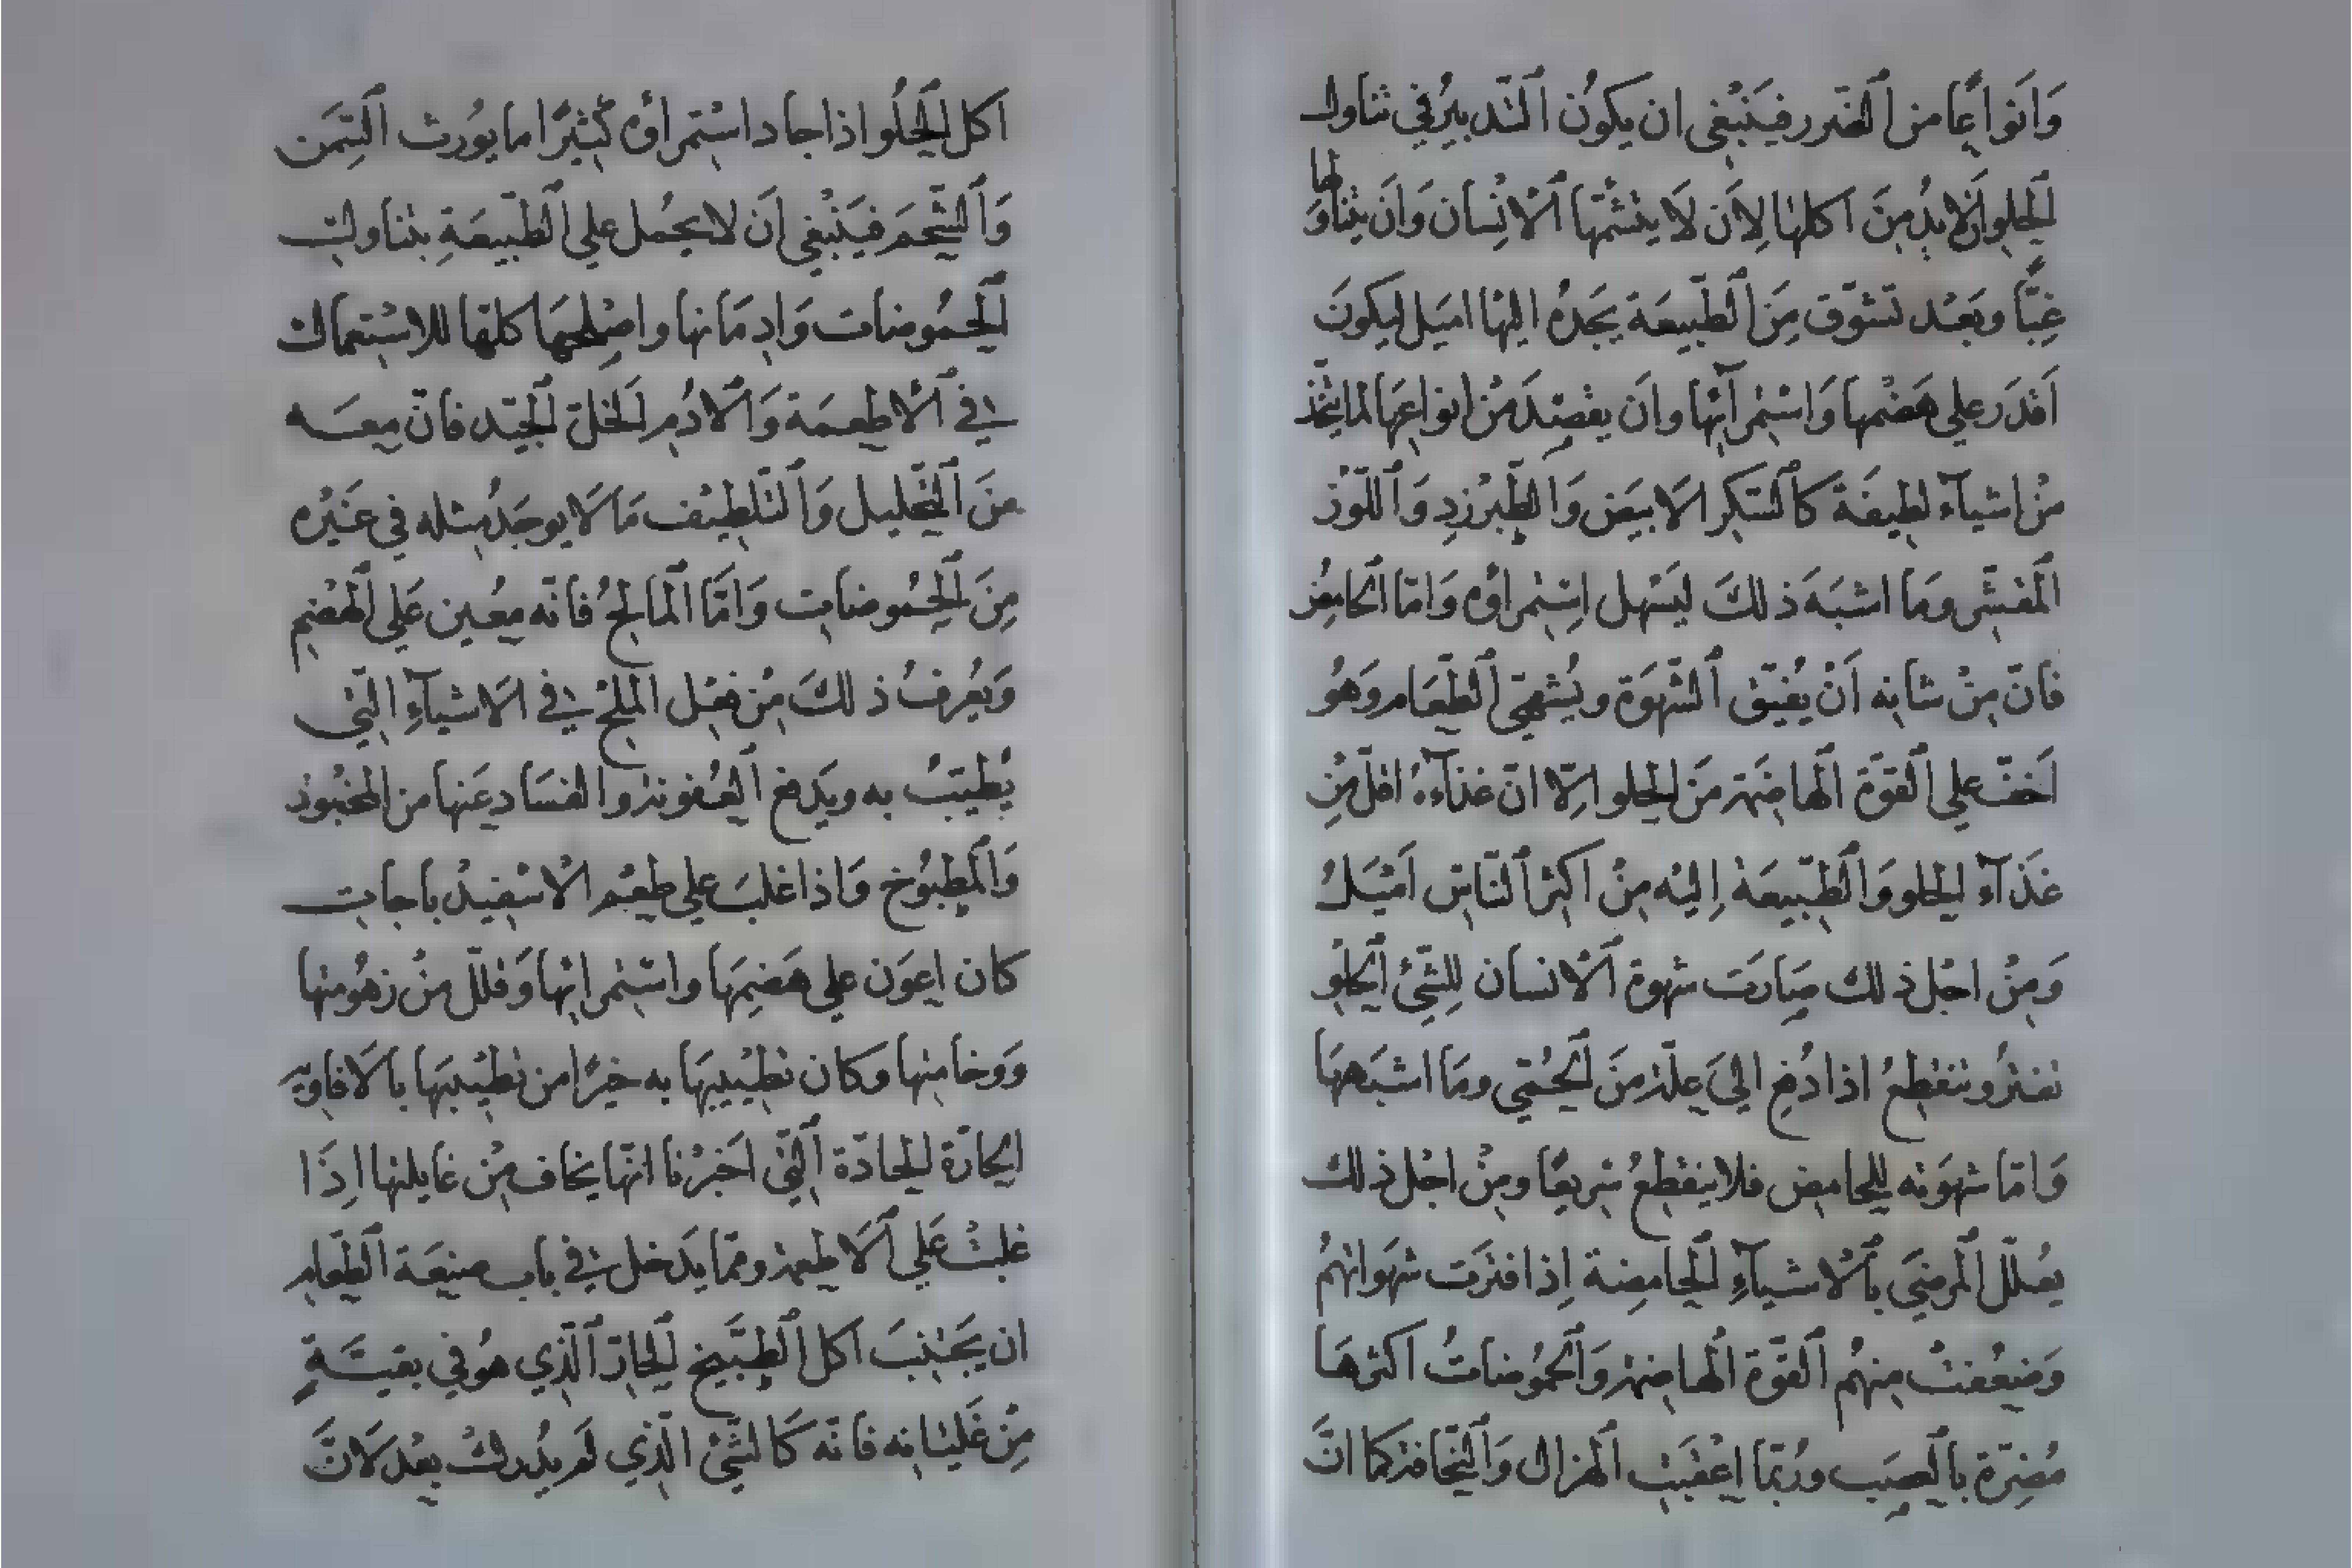 وَانَواعًا من الضّرر فيَنبْغى ان يكوُن التّدبيرُ في تناول
الحلو ان لا بدُ منَ اكلها لاِنَ لاَ ينشمّها الاْنِسْان وَانَ يتناوَلها
غِبّا وبعَدْ تشوّق مِنَ الطّبيعَة يجَدُه اليهْا اميَل ليكونَ
اَقدَر علي هَضْمها وَاسْتِمْرآئها وانَ يقصِدَ منْ انواعِهَا لما يتّخذ
منْ اشيآء لطيفَةً كالسّكر الاَبيَض وَالطّبَرْزدِ وَاللّوْز
المقشّر ومَا اشبَهَ ذلكَ ليَسْهل اسِتِمْراؤُه وَامّا الحامِضُ
فانّ مِنْ شانِه اَنْ يُفتّق الشّهوَة ويُشهّىَ الطّعَام وَهُو
اَخفّ علي القوّة الهاضمَة منَ الحلو اِلاّ انّ غذآءهُ اقلّ مِن
غَذآء الحلو وَالطّبيعَة اِليْه مِنْ اكثر النّاس اَمْيَلُ
وَمِنْ اجْل ذلك صَارَت شهوة الاْنسان لِلشّئِ الحلو
تفتُر وتنقطِعُ اذا دُفعِ اليَ علّة منَ الحُمّي ومَا اشبَههَا
وَامّا شهَوته لِلحامض فلا ينقطِعُ سَريعًا ومِنْ اجْل ذلك
يعُلّل المرضَي باْلاشيآءِ الحامِضة اِذا فترَت شهَواتهُم
وَضعُفتْ مِنهُم القوّة الهاضمة وَالحمُوضاتُ اكثرهَا
مُضِرّة بالعصَب ورُبمّا اعْقبَت الهزال وَالنّحافة كما انَّ
اكل الحلُو اذا جاد اسْتِمراؤُه كثيرًا ما يوُرث السّمَن
وَالشّحَم فيَنْبغي اَن لا يحُمل علي الطّبيعَةِ بتناول
الحمُوضات وَادِمَانها واصْلحهَا كلهّا للاسْتعمال
في الاْطعمَة وَالاْدُم الخلّ الجيّد فانّ معَه
منَ التّحليل وَالتّلطيْف مَا لاَ يوجَدُ مثله في غيَرْه
مِنَ الحمُوضات وَامّا المالحُ فانّه معُين عَلي الهضْم
وَيعُرفُ ذلكَ منِ فعِل الملحْ في الاَشيآءِ التّي
يُطيّبُ به ويَدفع العُفونة والفسَاد عَنها من المخبُوز
وَالمطبوُخ وَاذا غلبَ علي طعْم الاْسْفيدْباجات
كان اعوَن علي هَضمِهَا واسْتمرائها وَقلّل منْ زهُومتها
وَوخامتها وكان تطيْيبهَا به خيرًا من تطيْيبهَا بالاَفاويَه
الحارّة الحادّة التّي اَخبرْنا انّها يخاف مِنْ غايلتها اِذَا
غلبتْ عَلي الاَطعمة وممّا يَدخل في باب صنعَة الطّعام
ان يجَتنِبَ اكل الطّبَّيخ الحارّ الّذي هوُ في بقيّةٍ
مِنْ غَليَانِه فانّه كَالشّئِ الّذي لم يُدرك بعْد لاَنَّ